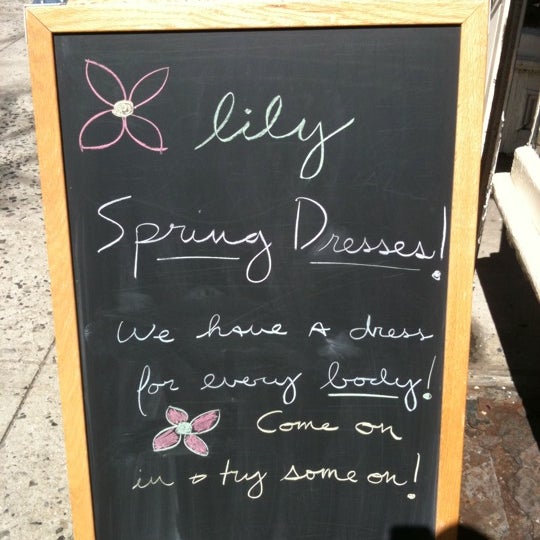 lily
Spring Dresses!
We have A dress
for every body!
Come on
in & try some on!